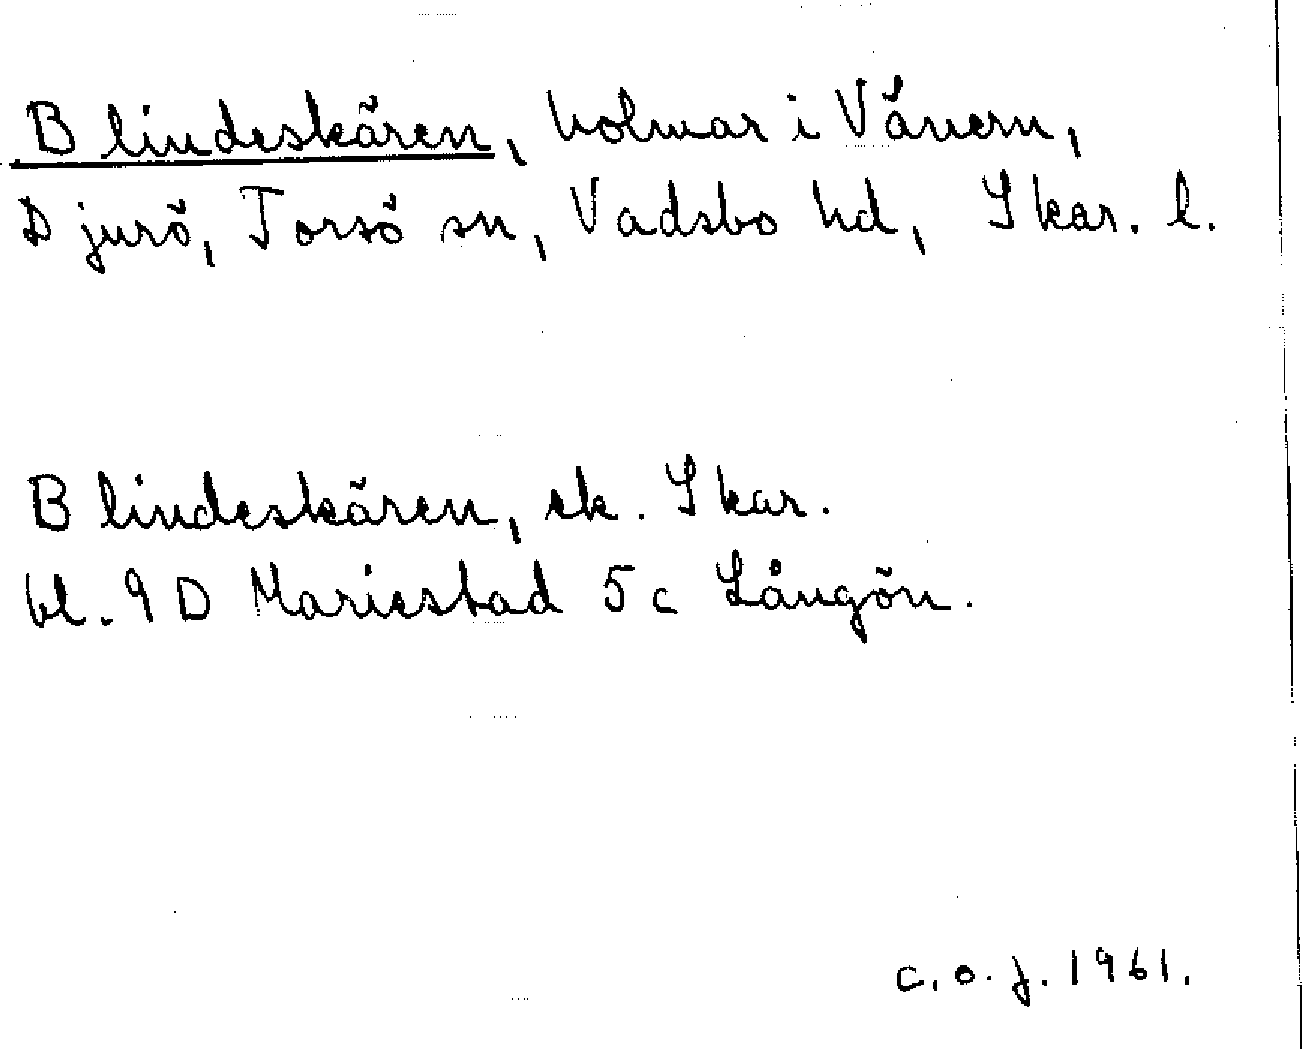 Blindeskären, holmar i Vänern,
Djurö, Torsö sn, Vadsbo hd, Skar. l.
Blindeskären, ek. Skar.
bl. 9 D Mariestad 5c Långön.
c.o.j. 1961.